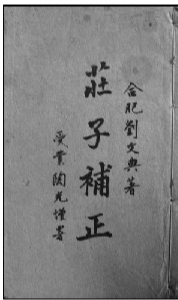 合肥劉文典著
莊子補正
受業陶光謹署